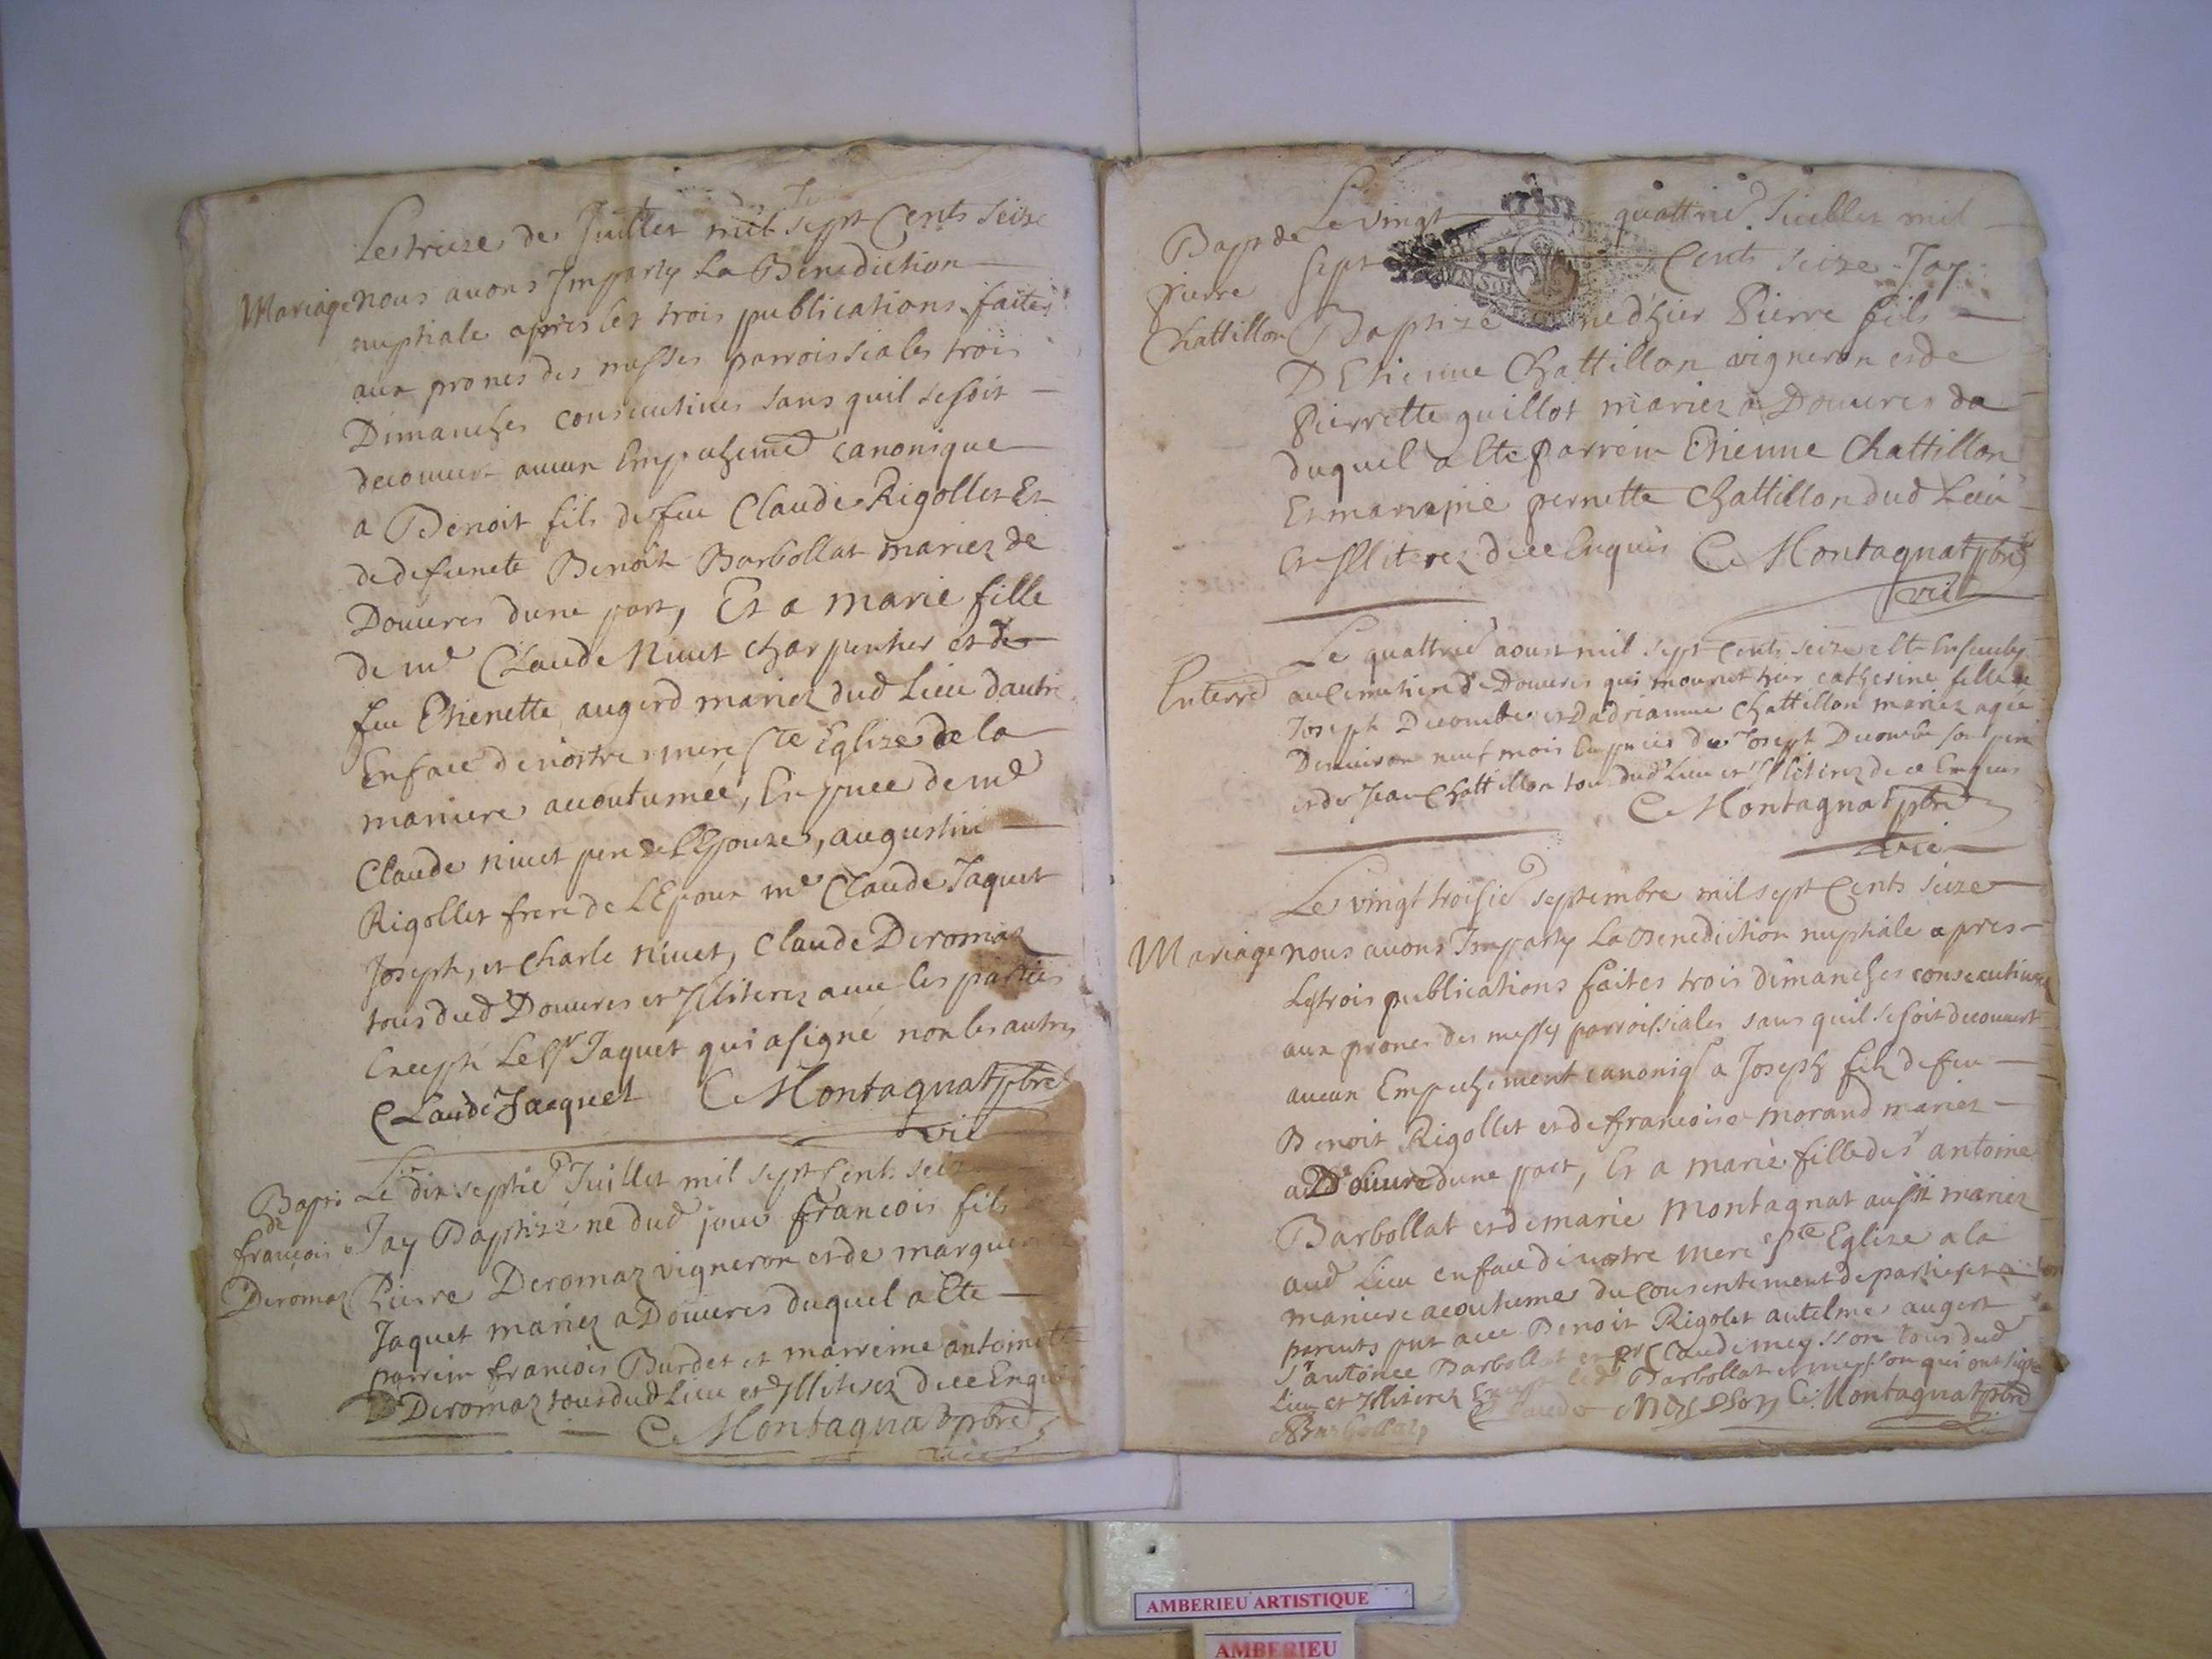 Le treize de Juillet mil sept Cents seize
Mariage nous auons Imparty La Benediction
nuptiale apres les trois publications faites
aux prones des messes parroissiales trois
Dimanches consecutiues sans quil se soit
decouuert aucun Empechemt canonique
a Benoit fils de feu Claude Rigollet Et
de defuncte Benoite Barbollat mariez de
Douures dune part, Et a marie fille
de me Claude Niuet charpentier et de
feu Ethienette augerd mariez dud Lieu dautre
Enface de nostre mere ste Eglize de la
maniere accoutumée, En pnce de me
Claude niuet pere de LEpouze, augustin
Rigollet frere de LEpoux me Claude Jaquet
Joseph, et Charle niuet, Claude Deromaz
tous dud Douures et Illiterez auec les parties
Excepté Le sr Jaquet qui a signé non les autres
Claude Jacquet C Montagnat pbre
vic
Bapt Le dix septie Juillet mil sept Cents
de
françois Jay Baptizé né dud jour francois fils
Deromaz Pierre Deromaz vigneron et de
Jaquet mariez a Douures duquel a Ete
parrein francois Burdet et marreine antoinette
Deromaz tous dud Lieu et Illiterez de ce Enquis
C Montagnat pbre
vic
Bapt de Le vingt quattrie Juillet mil
pierre sept Cents seize Jay
Chattillon Baptizé né dhier Pierre fils
DEthienne Chattillon vigneron et de
Pierrette guillot mariez a Douures
duquel a Ete parrein Ethienne Chattillon
Et marreine pernette Chattillon dud Lieu
Et Illiterez de ce Enquis C Montagnat pbre
vic
Le quattrie aoust mil sept Cents seize a Ete Enseuely
Enterred au Cemetiere de Douures qui mourut hier catherine fille de
Joseph Decombe et Dadrianne Chattillon mariez agée
Denuiron neuf mois En pnce de Joseph Decombe son pere
et de Jean Chattillon tous dud Lieu et Illiterez de ce Enquis
C Montagnat pbre
vic
Le vingt troisie septembre mil sept Cents seize
Mariage nous auons Imparty La Benediction nuptiale apres
Les trois publications faites trois dimanches consecutiues
aux prones des messes parroissiales sans quil se soit decouuert
aucun Empechement canoniq a Joseph fils de feu
Benoit Rigollet et de francoise morand mariez
a Douures dune part, Et a marie fille de sr antoine
Barbollat et de marie montagnat aussi mariez
aud Lieu enface de nostre mere ste Eglize a la
maniere accoutumee du consentement de parties et
parents pnt auec Benoit Rigolet antelme augert
sr antoinee Barbollat et Claude meysson tous dud
Lieu et Illiterez Excepté led Barbollat et meysson qui ont signé
Barbollat Claude Meysson C Montagnat pbre
AMBERIEU ARTISTIQUE
AMBERIEU